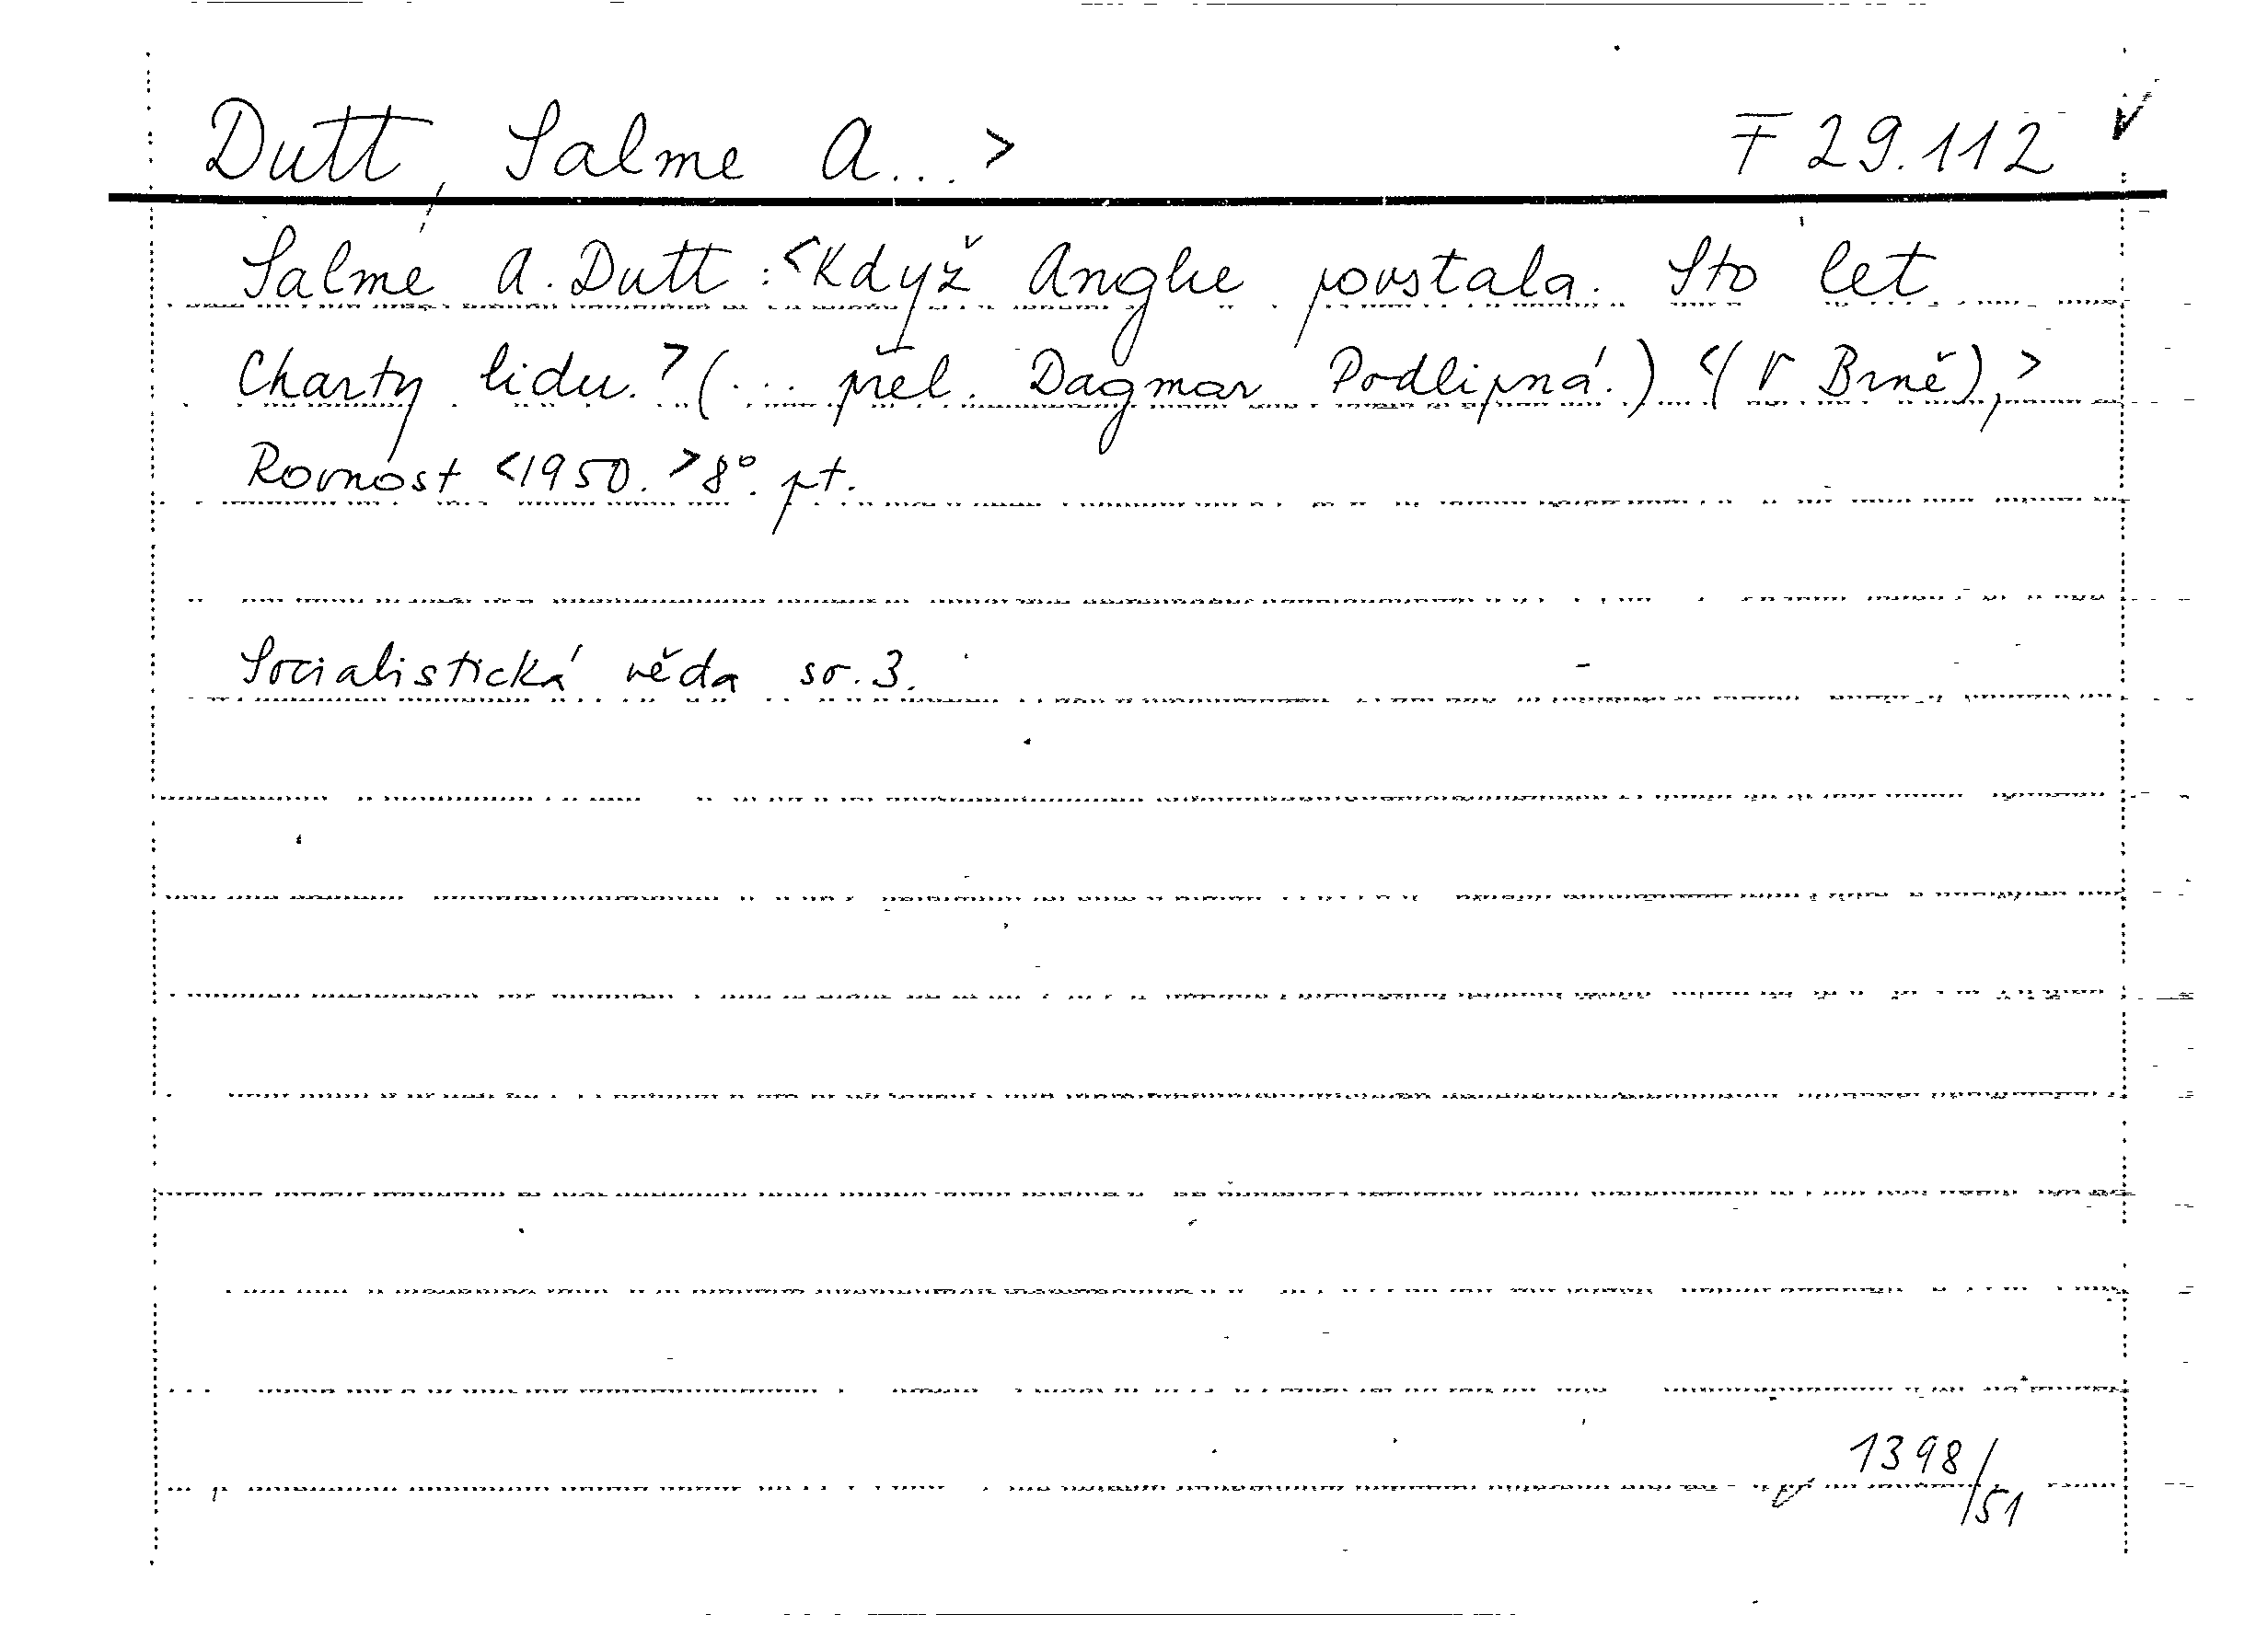 Dutt, Salme A...> F 29.112 v
Salme A. Dutt: <Když Anglie povstala. Sto let
Charty lidu.> (... přel. Dagmar Podlipná.) <(V Brně),>
Rovnost <1950.> 8°. pt.
Socialistická věda sv. 3.
1398/51